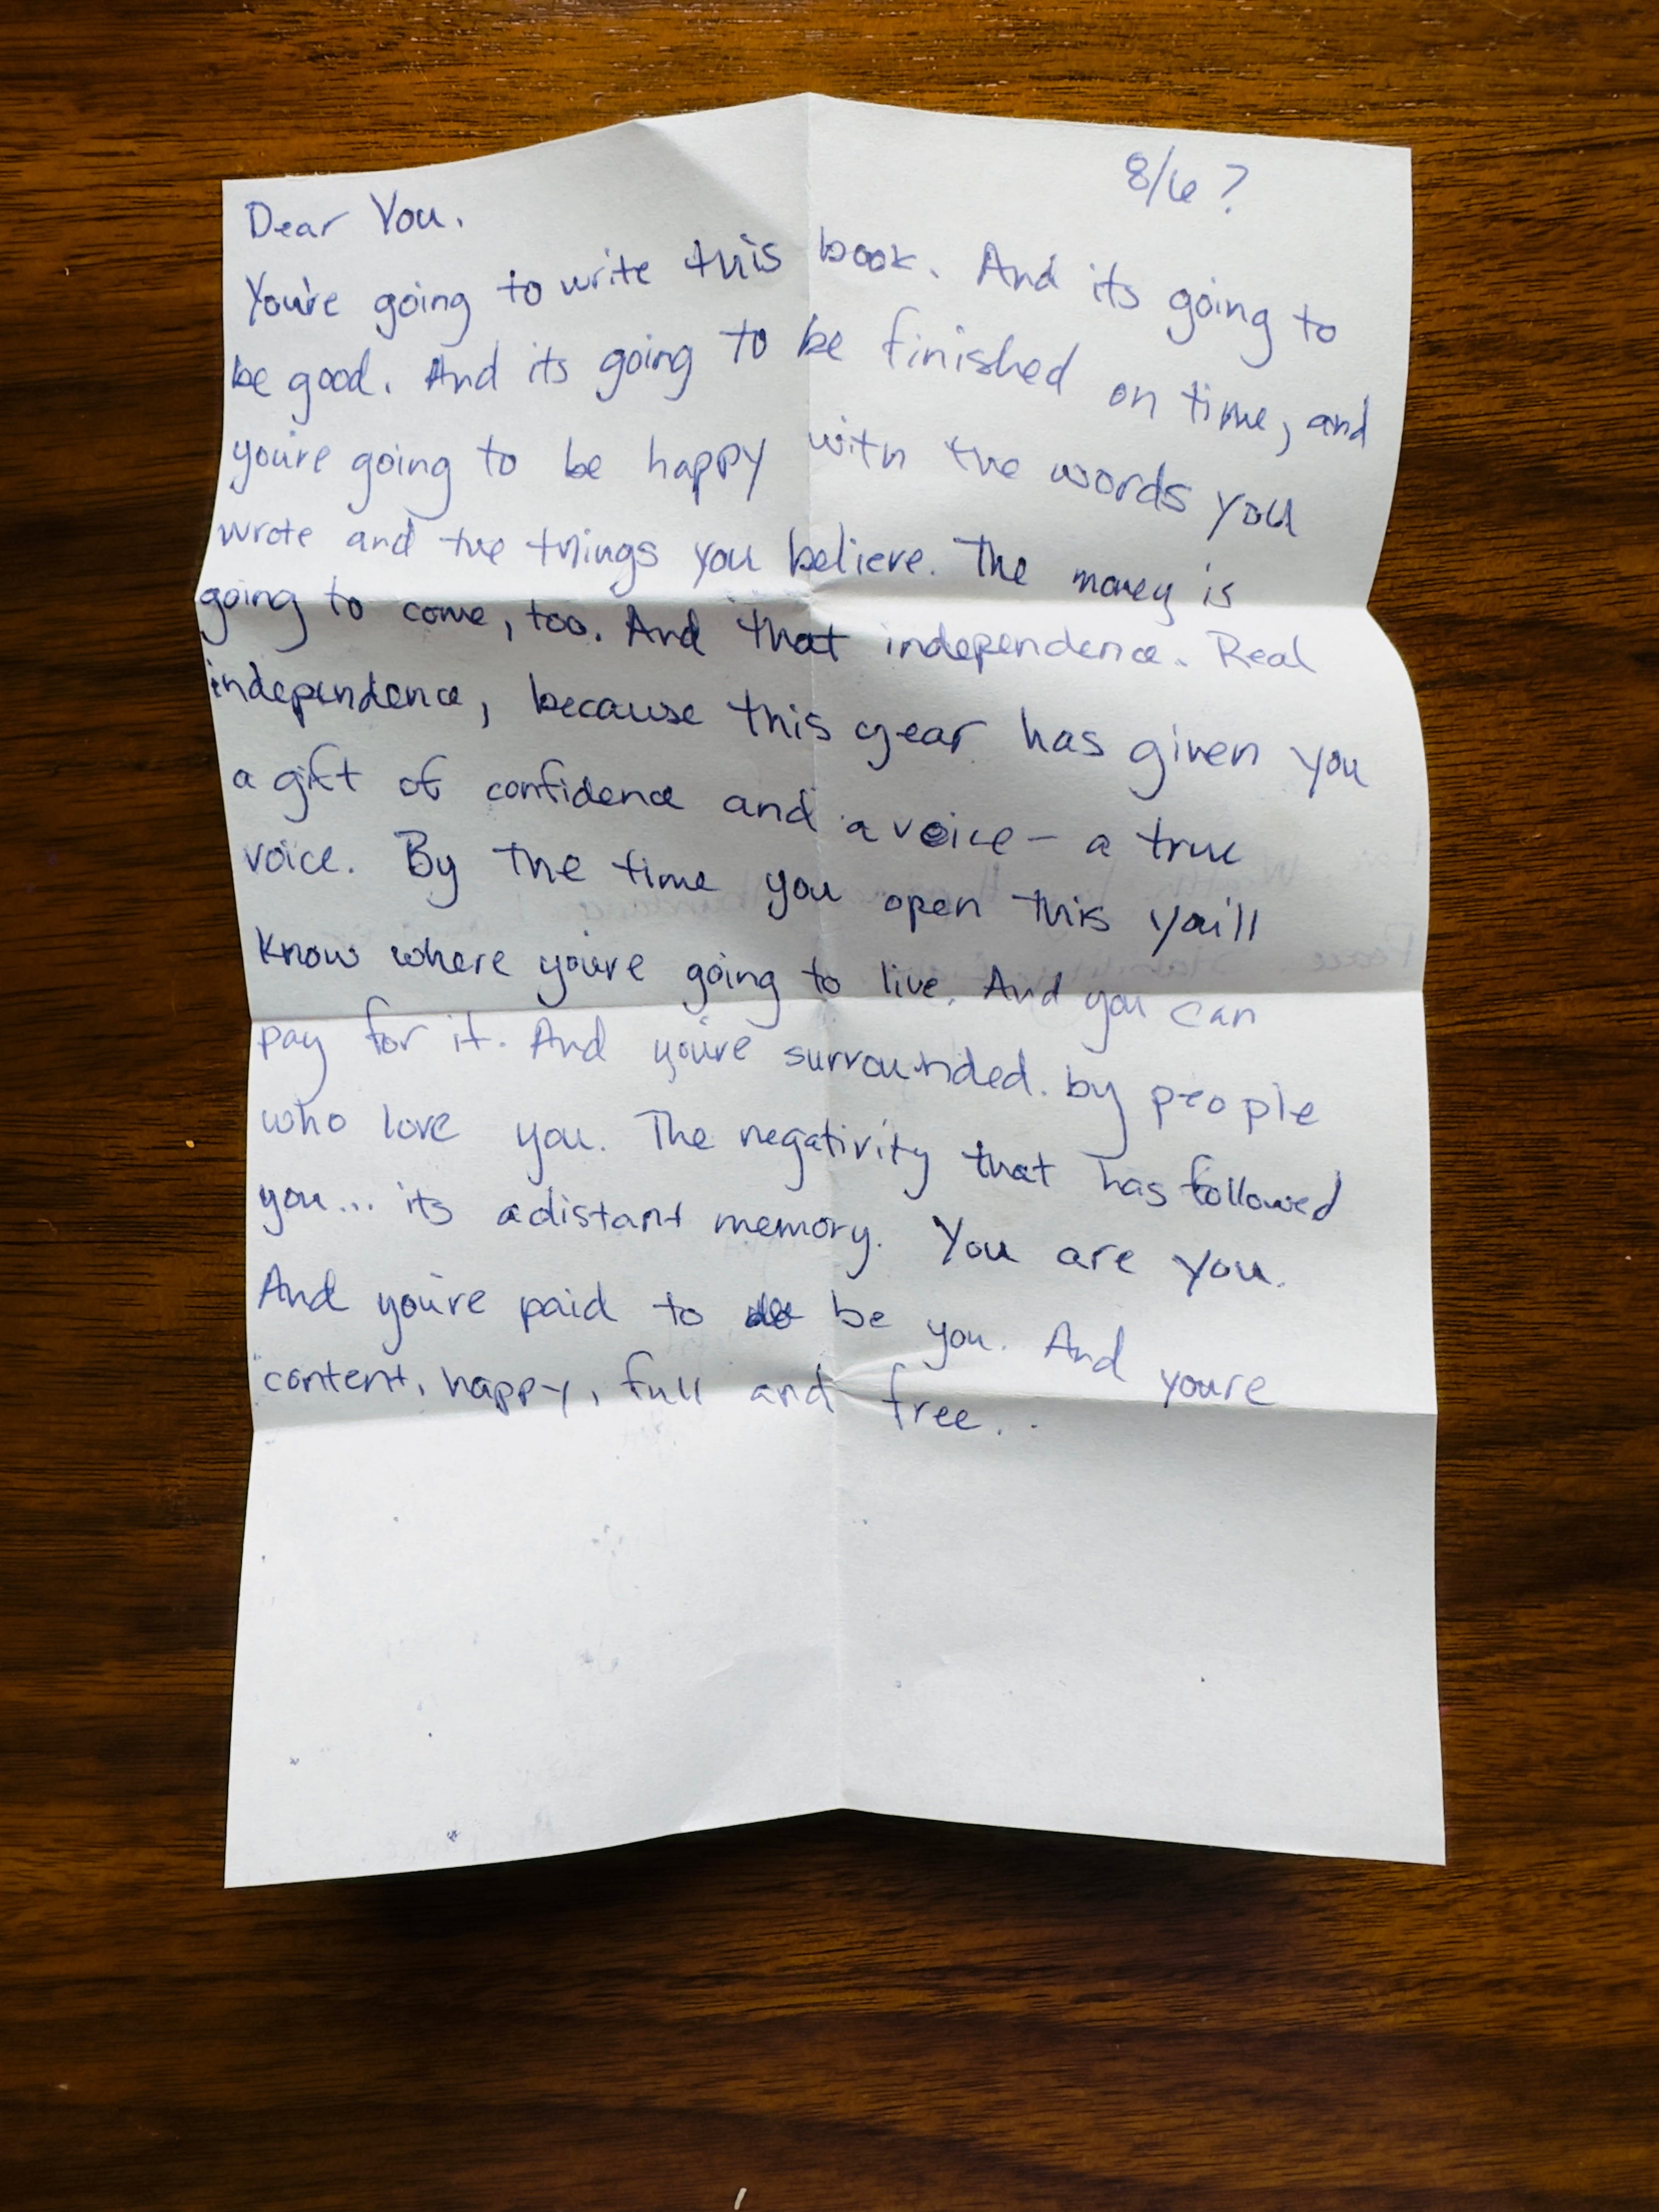 8/6?
Dear You.
You're going to write this book. And its going to
be good. And its going to be finished on time, and
you're going to be happy with the words you
wrote and the things you believe. The money is
going to come, too. And that independence. Real
independence, because this year has given you
a gift of confidence and a voice – a true
voice. By the time you open this you'll
know where you're going to live. And you can
pay for it. And you're surrounded by people
who love you. The negativity that has followed
you... its a distant memory. You are you.
And you're paid to be you. And youre
content, happy, full and free...